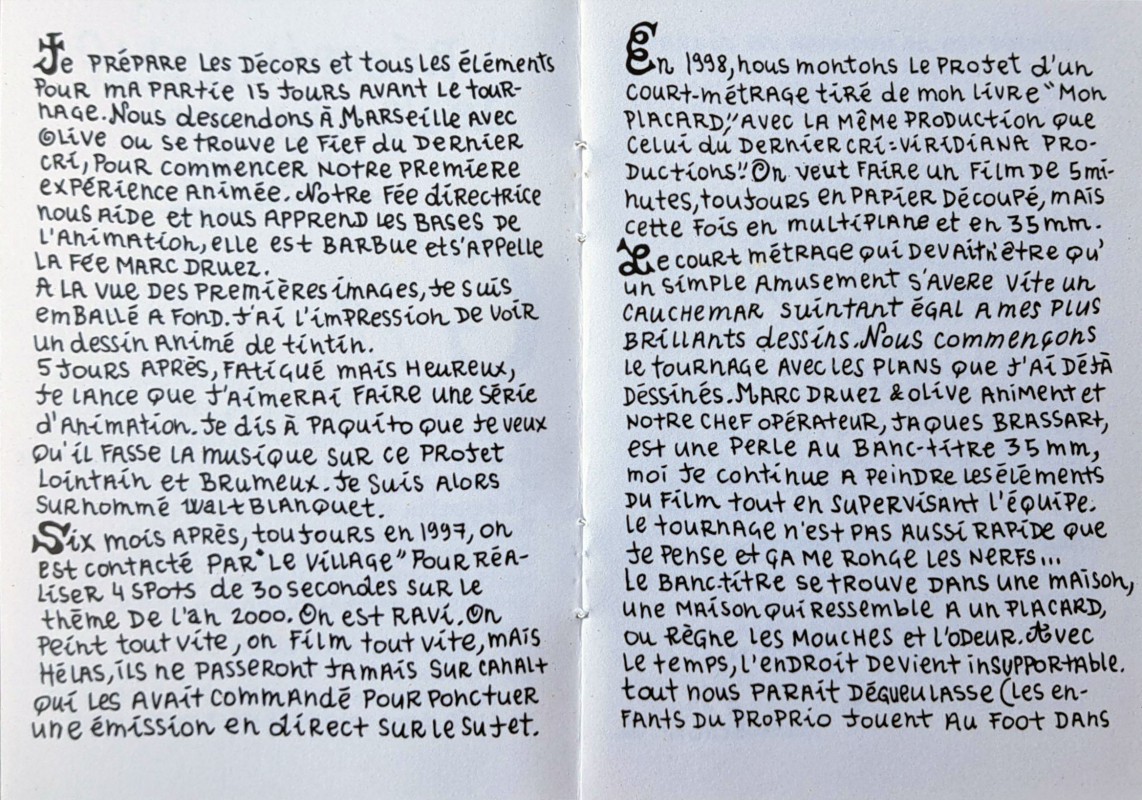 Je PRÉPARE Les Décors et tous Les éléments
Pour ma partie 15 jours avant Le tour-
nage. Nous descendons à Marseille avec
Olive ou se trouve Le Fief du Dernier
cri, Pour commencer notre premiere
expérience animée. Notre Fée directrice
nous aide et nous apprend les bases de
l'animation, elle est barbue et s'appelle
La Fée Marc Druez.
A La vue des premières images, je suis
emballé a fond. J'ai l'impression de voir
un dessin animé de tintin.
5 jours après, fatigué mais Heureux,
Je Lance que j'aimerai faire une série
d'animation. Je dis à Paquito que je veux
qu'il fasse la musique sur ce projet
Lointain et brumeux. Je suis alors
surnommé Walt Blanquet.
Six mois après, toujours en 1997, on
est contacté par "Le Village" pour réa-
liser 4 spots de 30 secondes sur le
thème de l'an 2000. On est ravi. On
peint tout vite, on film tout vite, mais
Hélas, ils ne passeront jamais sur canal+
qui les avait commandé pour ponctuer
une émission en direct sur le sujet.
En 1998, nous montons Le projet d'un
court-métrage tiré de mon livre "Mon
placard", avec la même production que
celui du dernier cri: "Viridiana Pro-
ductions". On veut faire un film de 5 mi-
nutes, toujours en papier découpé, mais
cette fois en multiplane et en 35 mm.
Le court métrage qui devait n'être qu'
un simple amusement s'avere vite un
cauchemar suintant égal a mes plus
brillants dessins. Nous commençons
le tournage avec les plans que j'ai déjà
déssinés. Marc Druez & olive animent et
notre chef opérateur, Jaques Brassart,
est une perle au banc-titre 35 mm,
moi je continue a peindre les éléments
du film tout en supervisant l'équipe.
Le tournage n'est pas aussi rapide que
je pense et ça me ronge les nerfs...
Le banctitre se trouve dans une maison,
une maison qui ressemble a un placard,
ou règne les mouches et l'odeur. Avec
le temps, l'endroit devient insupportable.
tout nous parait dégueulasse (les en-
fants du proprio jouent au foot dans